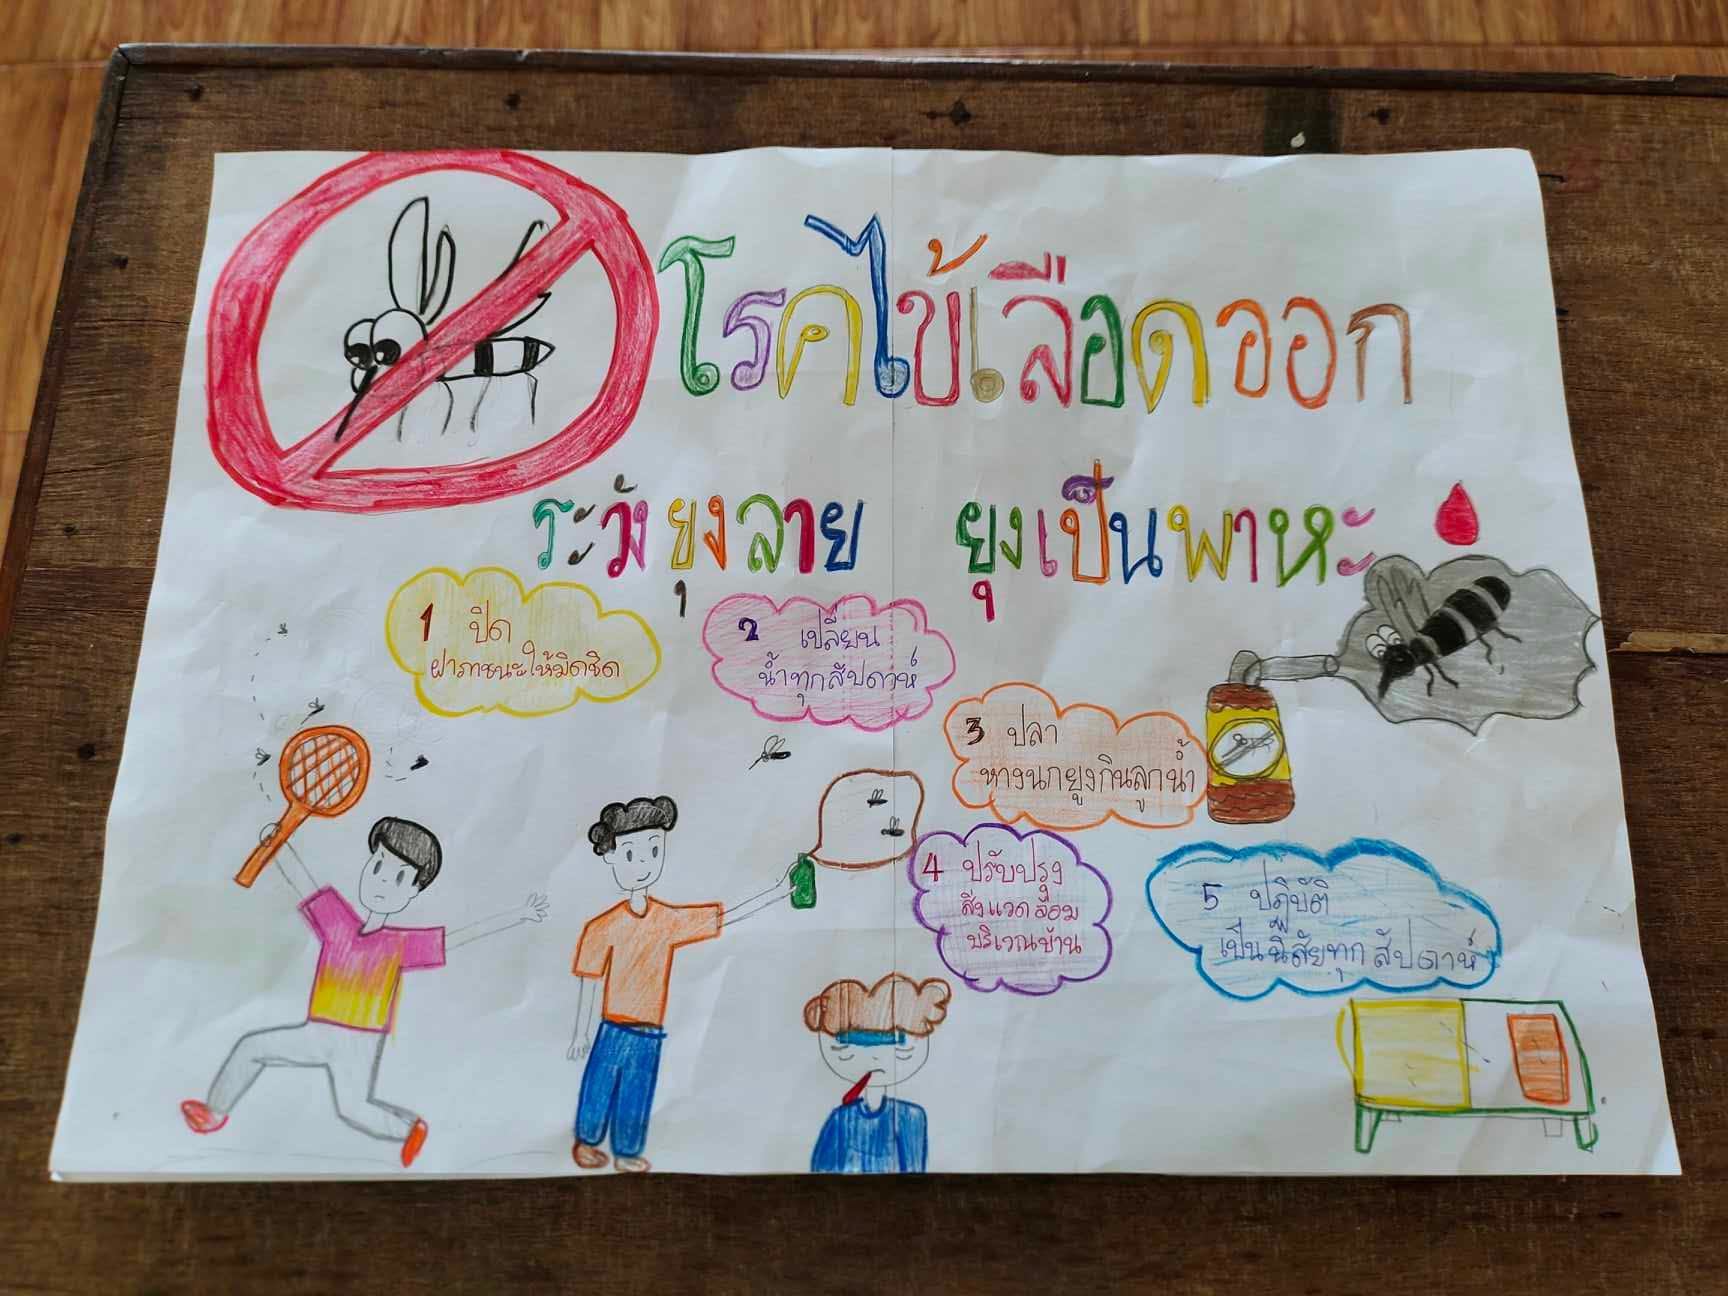 โรคไข้เลือดออก
ระวังยุงลาย ยุงเป็นพาหะ
1 ปิด
ฝาภาชนะให้มิดชิด
2 เปลี่ยน
น้ำทุกสัปดาห์
3 ปลา
หางนกยูงกินลูกน้ำ
4 ปรับปรุง
สิ่งแวดล้อม
บริเวณบ้าน
5 ปฏิบัติ
เป็นนิสัยทุกสัปดาห์